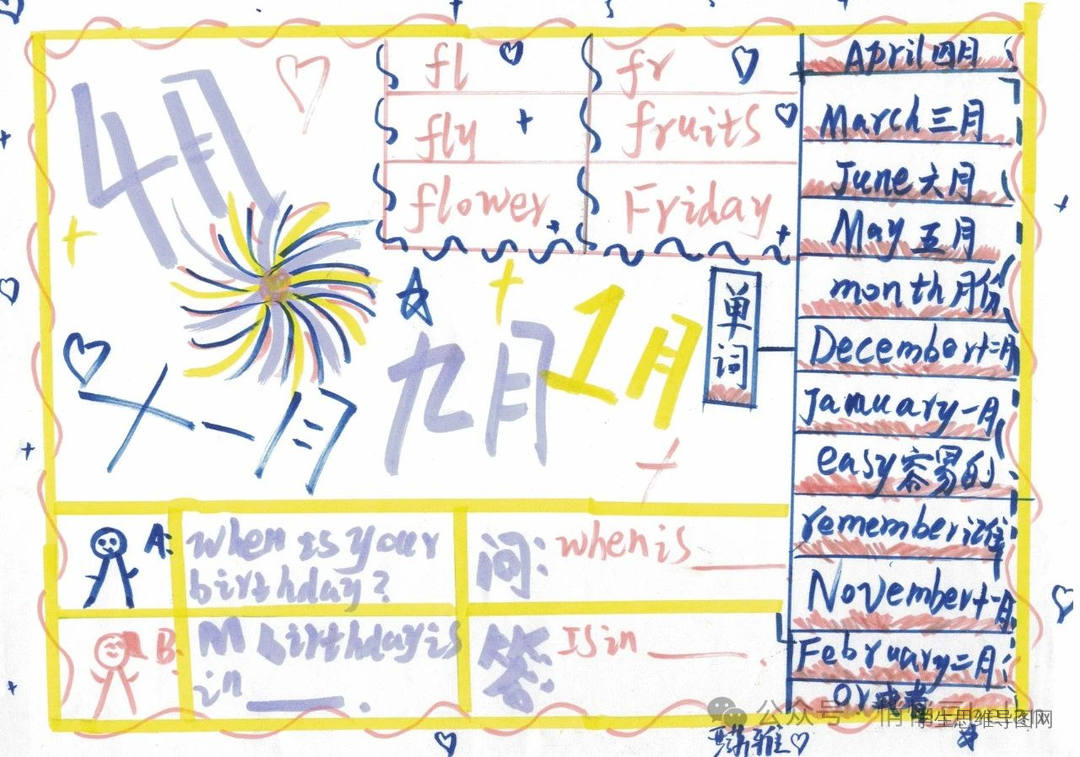 4月
fl
fr
fly
fruits
flower
Friday
April四月
March三月
June六月
May五月
month月份
December十二月
January一月
easy容易的
remember记住
November十一月
February二月
or或者
单词
十一月
九月
1月
A:
when is your
birthday?
问:
when is ____
B:
M birthday is
in ____.
答:
Is in ____.
公众号
学生思维导图网